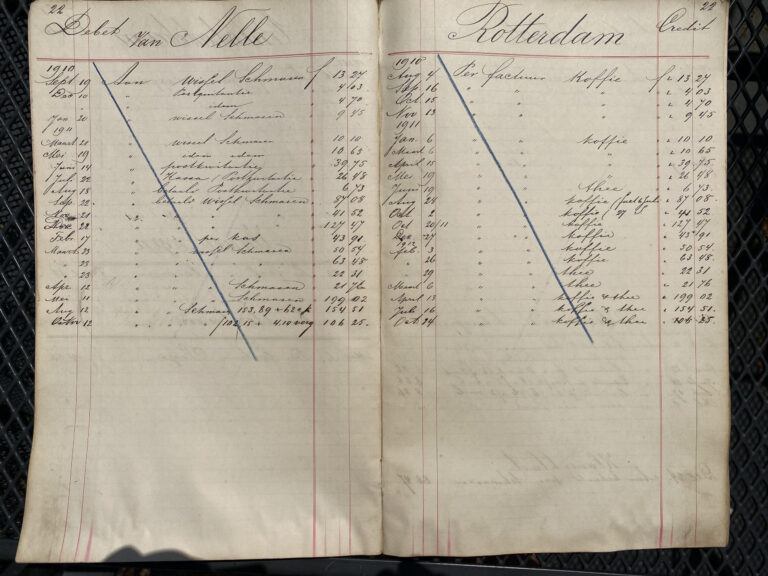 22
Debet Van Nelle
1910
Sept 19 Aan Wissel Schmasen f 13 27
Dec 10 " Postquitantie 4 03
" " idem 4 70
Jan 20 " wissel Schmasen 9 45
1911
Maart 21 " wissel Schmasen 10 10
Mei 19 " idem idem 10 65
Juni 14 " postkwitantie 39 75
Juli 22 " Kassa/Postquitantie 26 48
Aug 18 " betaele Postquitantie 6 73
Sep. 22 " betaele Wissel Schmasen 87 08
21 " " 41 52
22 " " 127 47
Feb. 17 " per kas 43 91
Maart 23 " wissel Schmasen 30 54
" 23 " " 63 48
" 23 " " 22 31
Apr. 12 " " Schmasen 21 76
Mei 11 " " Schmasen 199 02
Aug 12 " " Schmasen 153,89 + 62 154 51
12 " " f 102,15 + 4.10 106 25
22
Rotterdam Credit
1910
Aug 4 Per factuur Koffie f 13 27
Sep. 16 " " " 4 03
Oct. 15 " " " 4 70
Nov 13 " " " 9 45
1911
Jan. 6 " " koffie 10 10
Maart 6 " " " 10 65
April 15 " " " 39 75
Mei 19 " " " 26 48
Juni 19 " " thee 6 73
Aug 24 " " koffie 87 08
Oct 2 " " koffie 41 52
Oct 20/11 " " koffie 127 47
Dec 27 " " koffie 43 91
1912
Feb. 3 " " koffie 30 54
" 26 " " koffie 63 48
" 29 " " thee 22 31
Maart 6 " " thee 21 76
April 13 " " koffie & thee 199 02
Juli 16 " " koffie & thee 154 51
Oct 24 " " koffie & thee 106 25